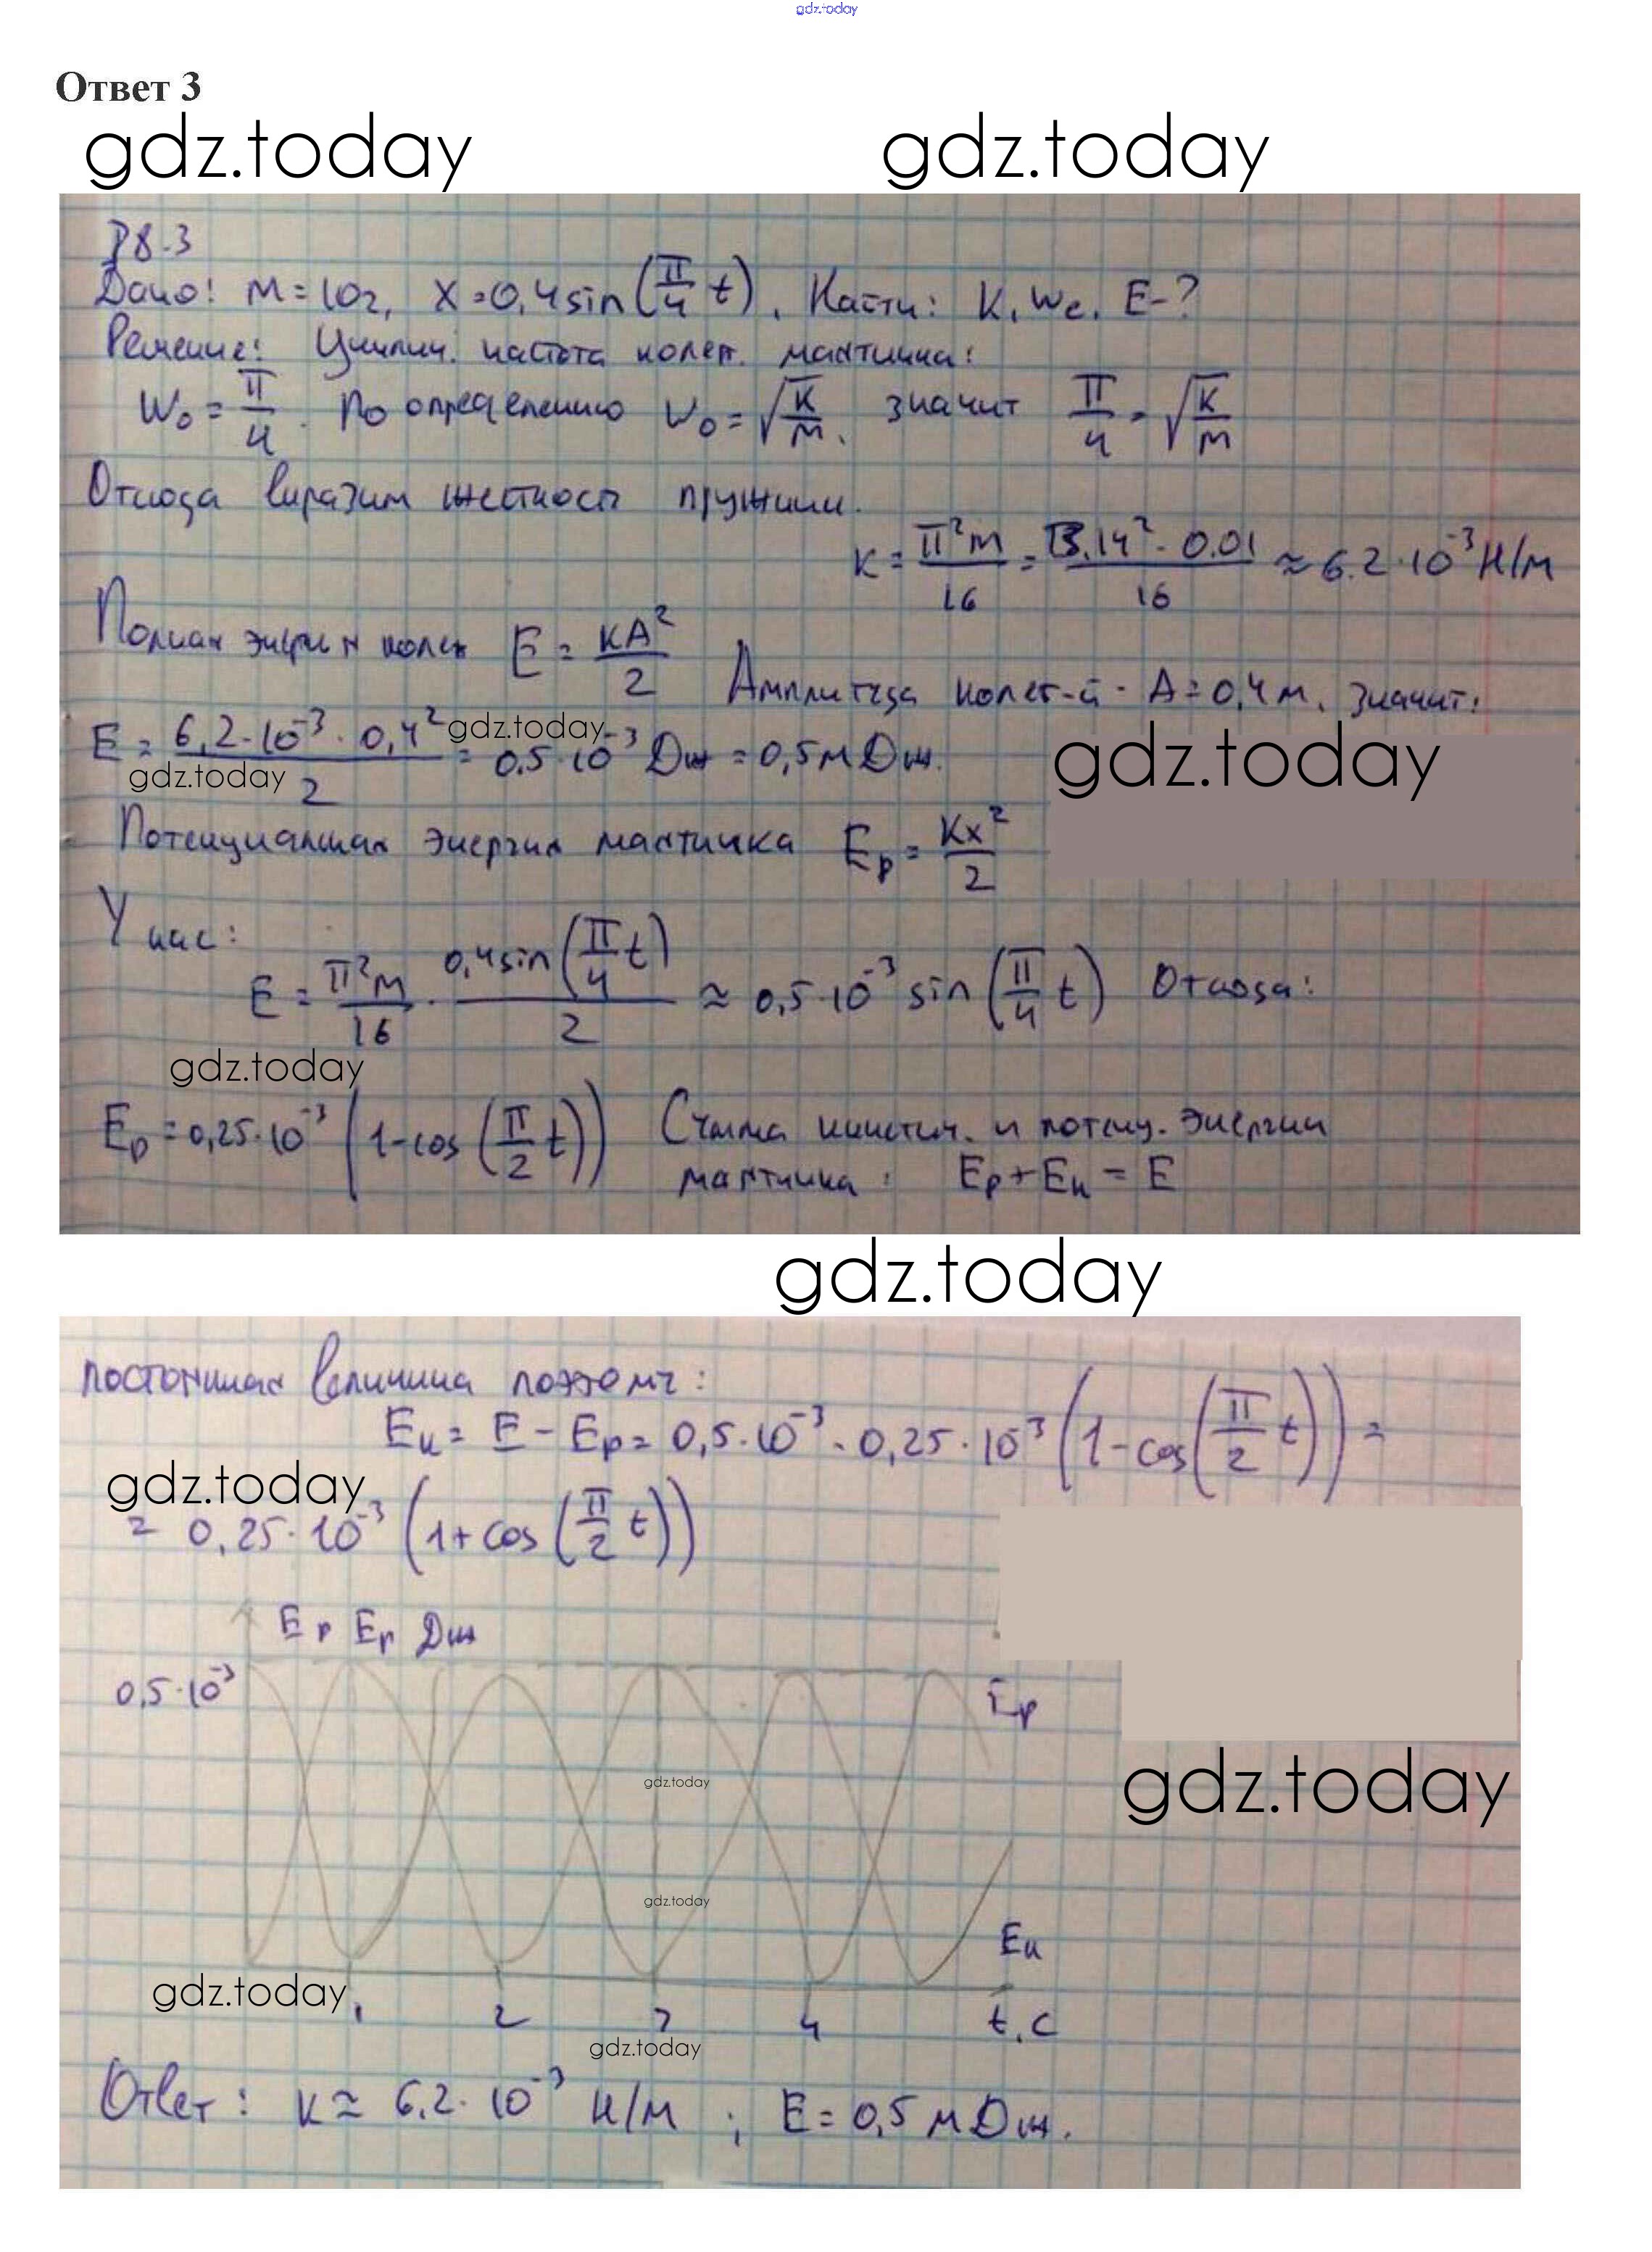 gdz.today
Ответ 3
gdz.today gdz.today
§8.3
Дано: m=10г, x=0,4sin(π/4 t). Найти: K, We, E-?
Решение: Циклич. частота колеб. маятника:
W₀ = π/4. По определению W₀ = √(K/m), значит π/4 = √(K/m)
Отсюда выразим жесткость пружины.
K = π²m/16 = 3.14² · 0.01/16 ≈ 6.2 · 10⁻³ Н/м
Полная энергия колеб E = KA²/2 Амплитуда колеб-й - A=0,4м. Значит:
E = 6,2·10⁻³ · 0,4²/2 = 0.5·10⁻³ Дж = 0,5мДж.
gdz.today
gdz.today
gdz.today
Потенциальная энергия маятника Eₚ = Kx²/2
У нас:
E = π²m/16 · 0,4sin(π/4 t)/2 ≈ 0,5·10⁻³ sin(π/4 t) Отсюда:
gdz.today
Eₚ = 0,25·10⁻³ (1-cos(π/2 t)) Сумма кинетич. и потенц. энергии
маятника: Eₚ+Eк = E
gdz.today
постоянная величина поэтому:
Eк = E - Eₚ = 0,5·10⁻³ - 0,25·10⁻³ (1-cos(π/2 t)) =
gdz.today
= 0,25·10⁻³ (1+cos(π/2 t))
Eₚ Eₚ Дж
0,5·10⁻³
Eₚ
gdz.today
gdz.today
gdz.today
Eк
gdz.today
1 2 3 4 t,c
gdz.today
Ответ: K≈ 6,2·10⁻³ Н/м; E=0,5 мДж.